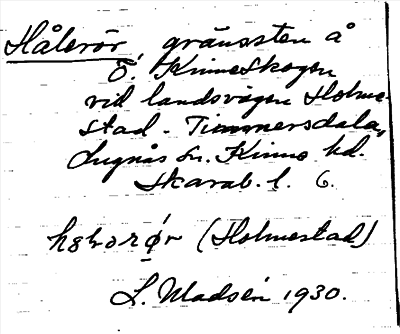 Hålerör, gränssten å
Ö. Kinneskogen
vid landsvägen Holme-
stad - Timmersdala,
Lugnås sn. Kinne hd.
Skarab. l. 6.
(Holmestad)
L. Madsén 1930.